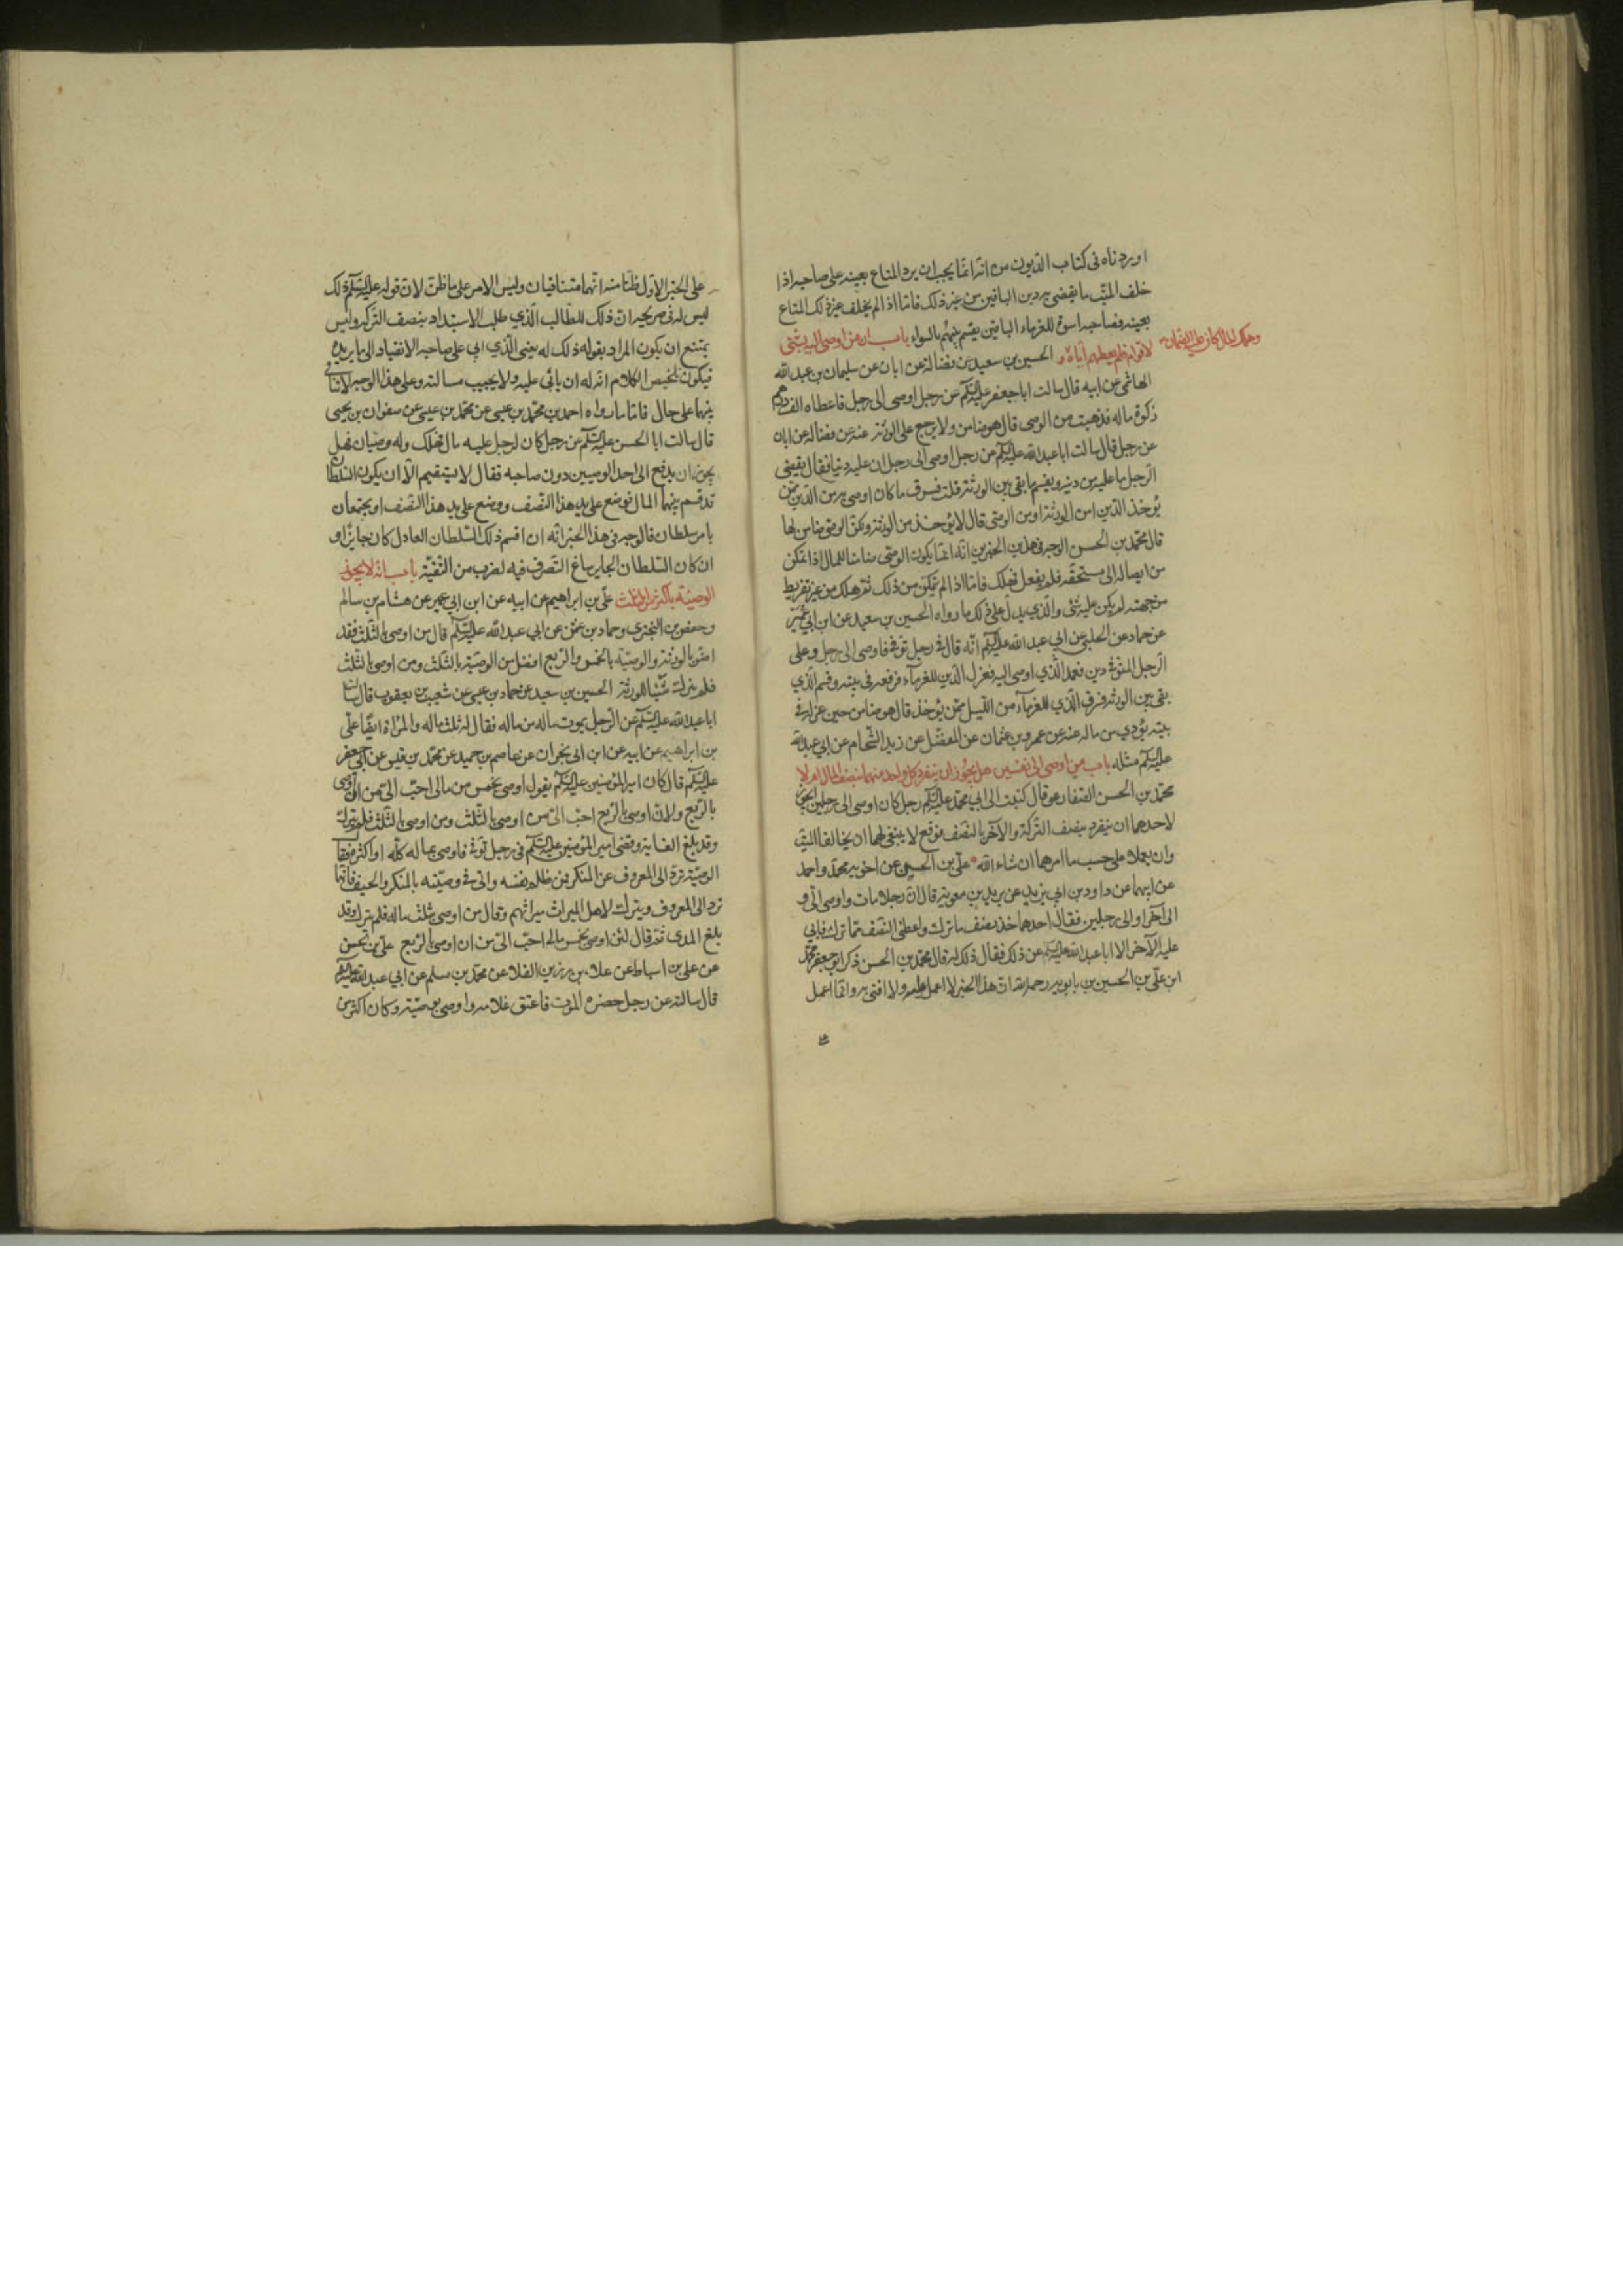 اوردناه فى كتاب الديون من انه انما يجب ان يرد المتاع بعينه على صاحبه اذا
خلف الميت ما يقضى به دين الباقين من غير ذلك فاما اذا لم يخلف غير ذلك المتاع
بعينه فصاحبه اسوة للغرماء الباقين يقسم بينهم بالسواء باب ان من اوصى اليه بشئ
لاقوام فلم يعطهم اياه وهلك المال كان عليه الضمان
الحسين بن سعيد عن فضالة عن ابان عن سليمان بن عبد الله
الهاشمى عن ابيه قال سالت ابا جعفر عليه السلم عن رجل اوصى الى رجل فاعطاه الف درهم
زكوة ماله فذهبت من الوصى قال هو ضامن ولا يرجع على الورثة عنه عن فضالة عن ابان
عن رجل قال سالت ابا عبد الله عليه السلم عن رجل اوصى الى رجل ان عليه دينا فقال يقضى
الرجل ما عليه من دينه ويقسم ما بقى بين الورثة قلت فسرق ما كان اوصى به من الدين ممن
يؤخذ الدين امن الورثة او من الوصى قال لا يؤخذ من الورثة ولكن الوصى ضامن لها
قال محمد بن الحسن الوجه فى هذين الخبرين انه انما يكون الوصى ضامنا للمال اذا تمكن
من ايصاله الى مستحقه فلم يفعل فهلك فاما اذا لم يتمكن من ذلك ثم هلك من غير تفريط
من جهته لم يكن عليه شئ والذي يدل على ذلك ما رواه الحسين بن سعيد عن ابن ابي عمير
عن حماد عن الحلبي عن ابي عبد الله عليه السلم انه قال فى رجل توفى فاوصى الى رجل وعلى
الرجل المتوفى دين فعمد الذي اوصى اليه فعزل الذين للغرماء فرفعه فى بيته وقسم الذي
بقى بين الورثة فسرق الذي للغرماء من الليل ممن يؤخذ قال هو ضامن حين عزله فى
بيته يؤدي من ماله عنه عن عمرو بن عثمان عن المفضل عن زيد الشحام عن ابي عبد الله
عليه السلم مثله باب من اوصى الى نفسين هل يجوز ان ينفرد كل واحد منهما بنصف المال ام لا
محمد بن الحسن الصفار قال كتبت الى ابي محمد عليه السلم رجل كان اوصى الى رجلين ايجوز
لاحدهما ان ينفرد بنصف التركة والآخر بالنصف فوقع لا ينبغى لهما ان يخالفا الميت
وان يعملا على حسب ما امرهما ان شاء الله على بن الحسين عن اخويه محمد واحمد
عن ابيهما عن داود بن ابي يزيد عن بريد بن معوية قال ان رجلا مات واوصى الى و
الى آخر او الى رجلين فقال احدهما خذ نصف ما ترك واعطنى النصف مما ترك فابى
عليه الآخر الا ابا عبد الله عليه السلم عن ذلك فقال ذلك له قال محمد بن الحسن ذكر ابو جعفر محمد
ابن على بن الحسين بن بابويه رحمه الله ان هذا الخبر لا اعمل عليه ولا افتى به وانما اعمل
على الخبر الاول ظنا منه انهما متنافيان وليس الامر على ما ظن لان قوله عليه السلم ذلك
ليس له فى صريحه ان ذلك للطالب الذي طلب الاستبداد بنصف التركة وليس
يمتنع ان يكون المراد بقوله ذلك له يعنى الذي ابى على صاحبه الانقياد الى ما يريده
فيكون تلخيص الكلام انه له ان يابى عليه ولا يجيب مسالته وعلى هذا الوجه لا تنافى
بينهما على حال فاما ما رواه احمد بن محمد بن عيسى عن محمد بن عيسى عن صفوان بن يحيى
قال سالت ابا الحسن عليه السلم عن رجل كان لرجل عليه مال فهلك وله وصيان فهل
يجوز ان يدفع الى احد الوصيين دون صاحبه فقال لا يستقيم الا ان يكون السلطان
قد قسم بينهما المال فوضع على يد هذا النصف ووضع على يد هذا النصف او يجتمعان
بامر سلطان فالوجه فى هذا الخبر انه ان اقسم ذلك السلطان العادل كان جايزا و
ان كان السلطان الجاير ساغ التصرف فيه لضرب من التقية باب انه لا يجوز
الوصية باكثر من الثلث على بن ابراهيم عن ابيه عن ابن ابي عمير عن هشام بن سالم
وحفص بن البخترى وحماد بن عثمن عن ابي عبد الله عليه السلم قال من اوصى بالثلث فقد
اضر بالورثة والوصية بالخمس والربع افضل من الوصية بالثلث ومن اوصى بالثلث
فلم يترك شيئا للورثة الحسين بن سعيد عن حماد بن عيسى عن شعيب بن يعقوب قال سالت
ابا عبد الله عليه السلم عن الرجل يموت ماله من ماله فقال له ثلث ماله والمراة ايضا على
بن ابراهيم عن ابيه عن ابن ابى نجران عن عاصم بن حميد عن محمد بن قيس عن ابي جعفر
عليه السلم قال كان امير المؤمنين عليه السلم يقول اوصى بخمس من مالى احب الى من ان اوصى
بالربع ولان اوصى بالربع احب الى من اوصى بالثلث ومن اوصى بالثلث فلم يترك
وقد بلغ الغاية وقضى امير المؤمنين عليه السلم فى رجل توفى فاوصى بماله كله او اكثره فقا
الوصية ترد الى المعروف عن المنكر فمن ظلم نفسه واتى فى وصيته بالمنكر والحيف فانها
ترد الى المعروف ويترك لاهل الميراث ميراثهم وقال من اوصى بثلث ماله فلم يترك وقد
بلغ المدى ثم قال لئن اوصى بخمس مالى احب الى من ان اوصى بالربع على بن الحسن
عن على بن اسباط عن علاء بن رزين القلا عن محمد بن مسلم عن ابي عبد الله عليه السلم
قال سالته عن رجل حضره الموت فاعتق غلامه واوصى بوصية وكان اكثر من